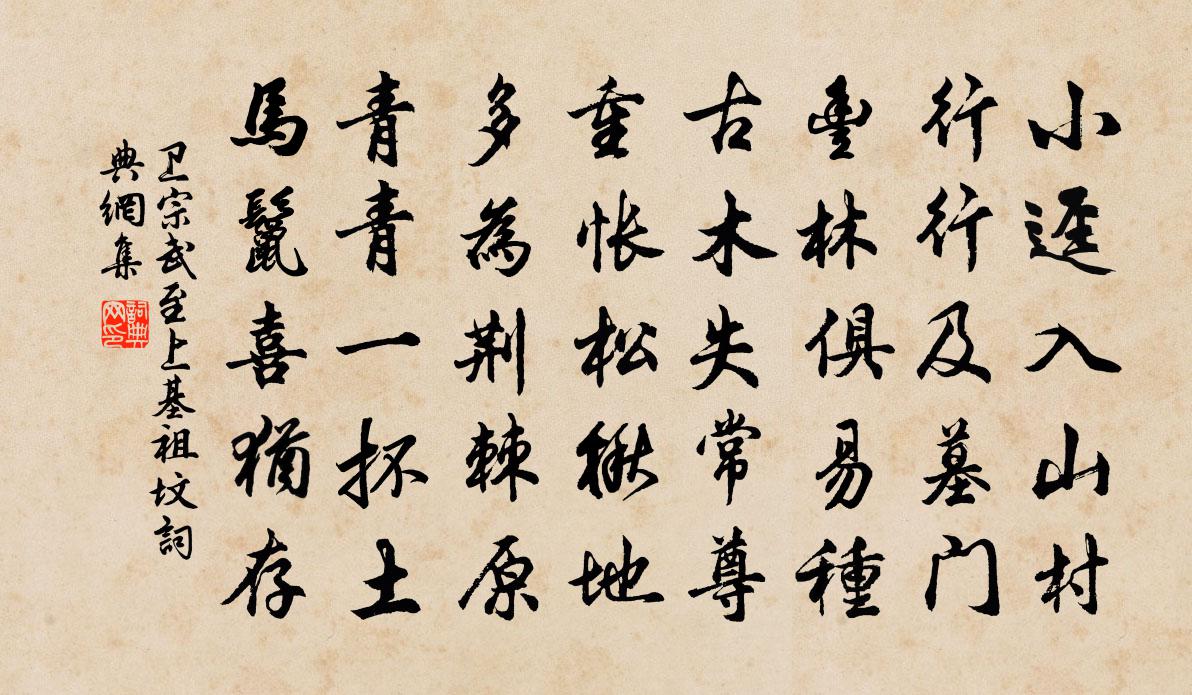 小逕入山村
行行及墓門
豊林俱易種
古木失常尊
重悵松楸地
多為荆棘原
青青一抔土
馬鬛喜猶存
卫宗武至上基祖坟詞
典網集
詞典
网印